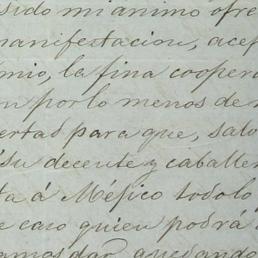 sido mi animo ofre
manifestacion, acep
mio, la fina coopera
n por lo menos de n
ertad para que, salo
su decente y caballe
ta á Méjico todo lo
e caso quien podrá
amos dar, quedando